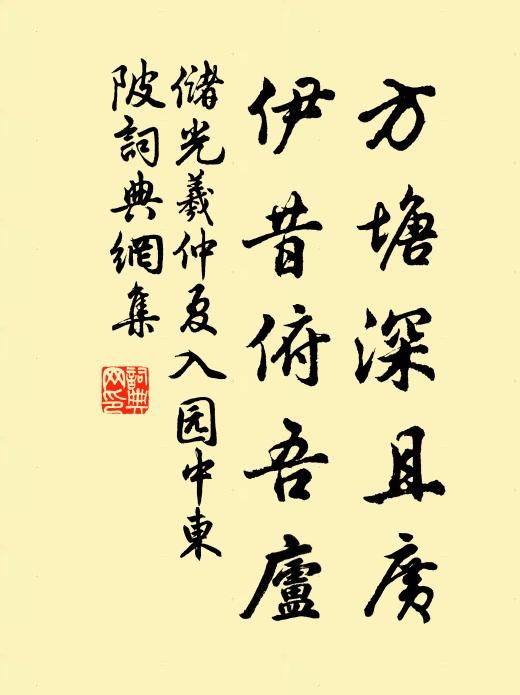 方塘深且廣
伊昔俯吾廬
儲光羲仲夏入园中東
陂詞典網集
詞典网印